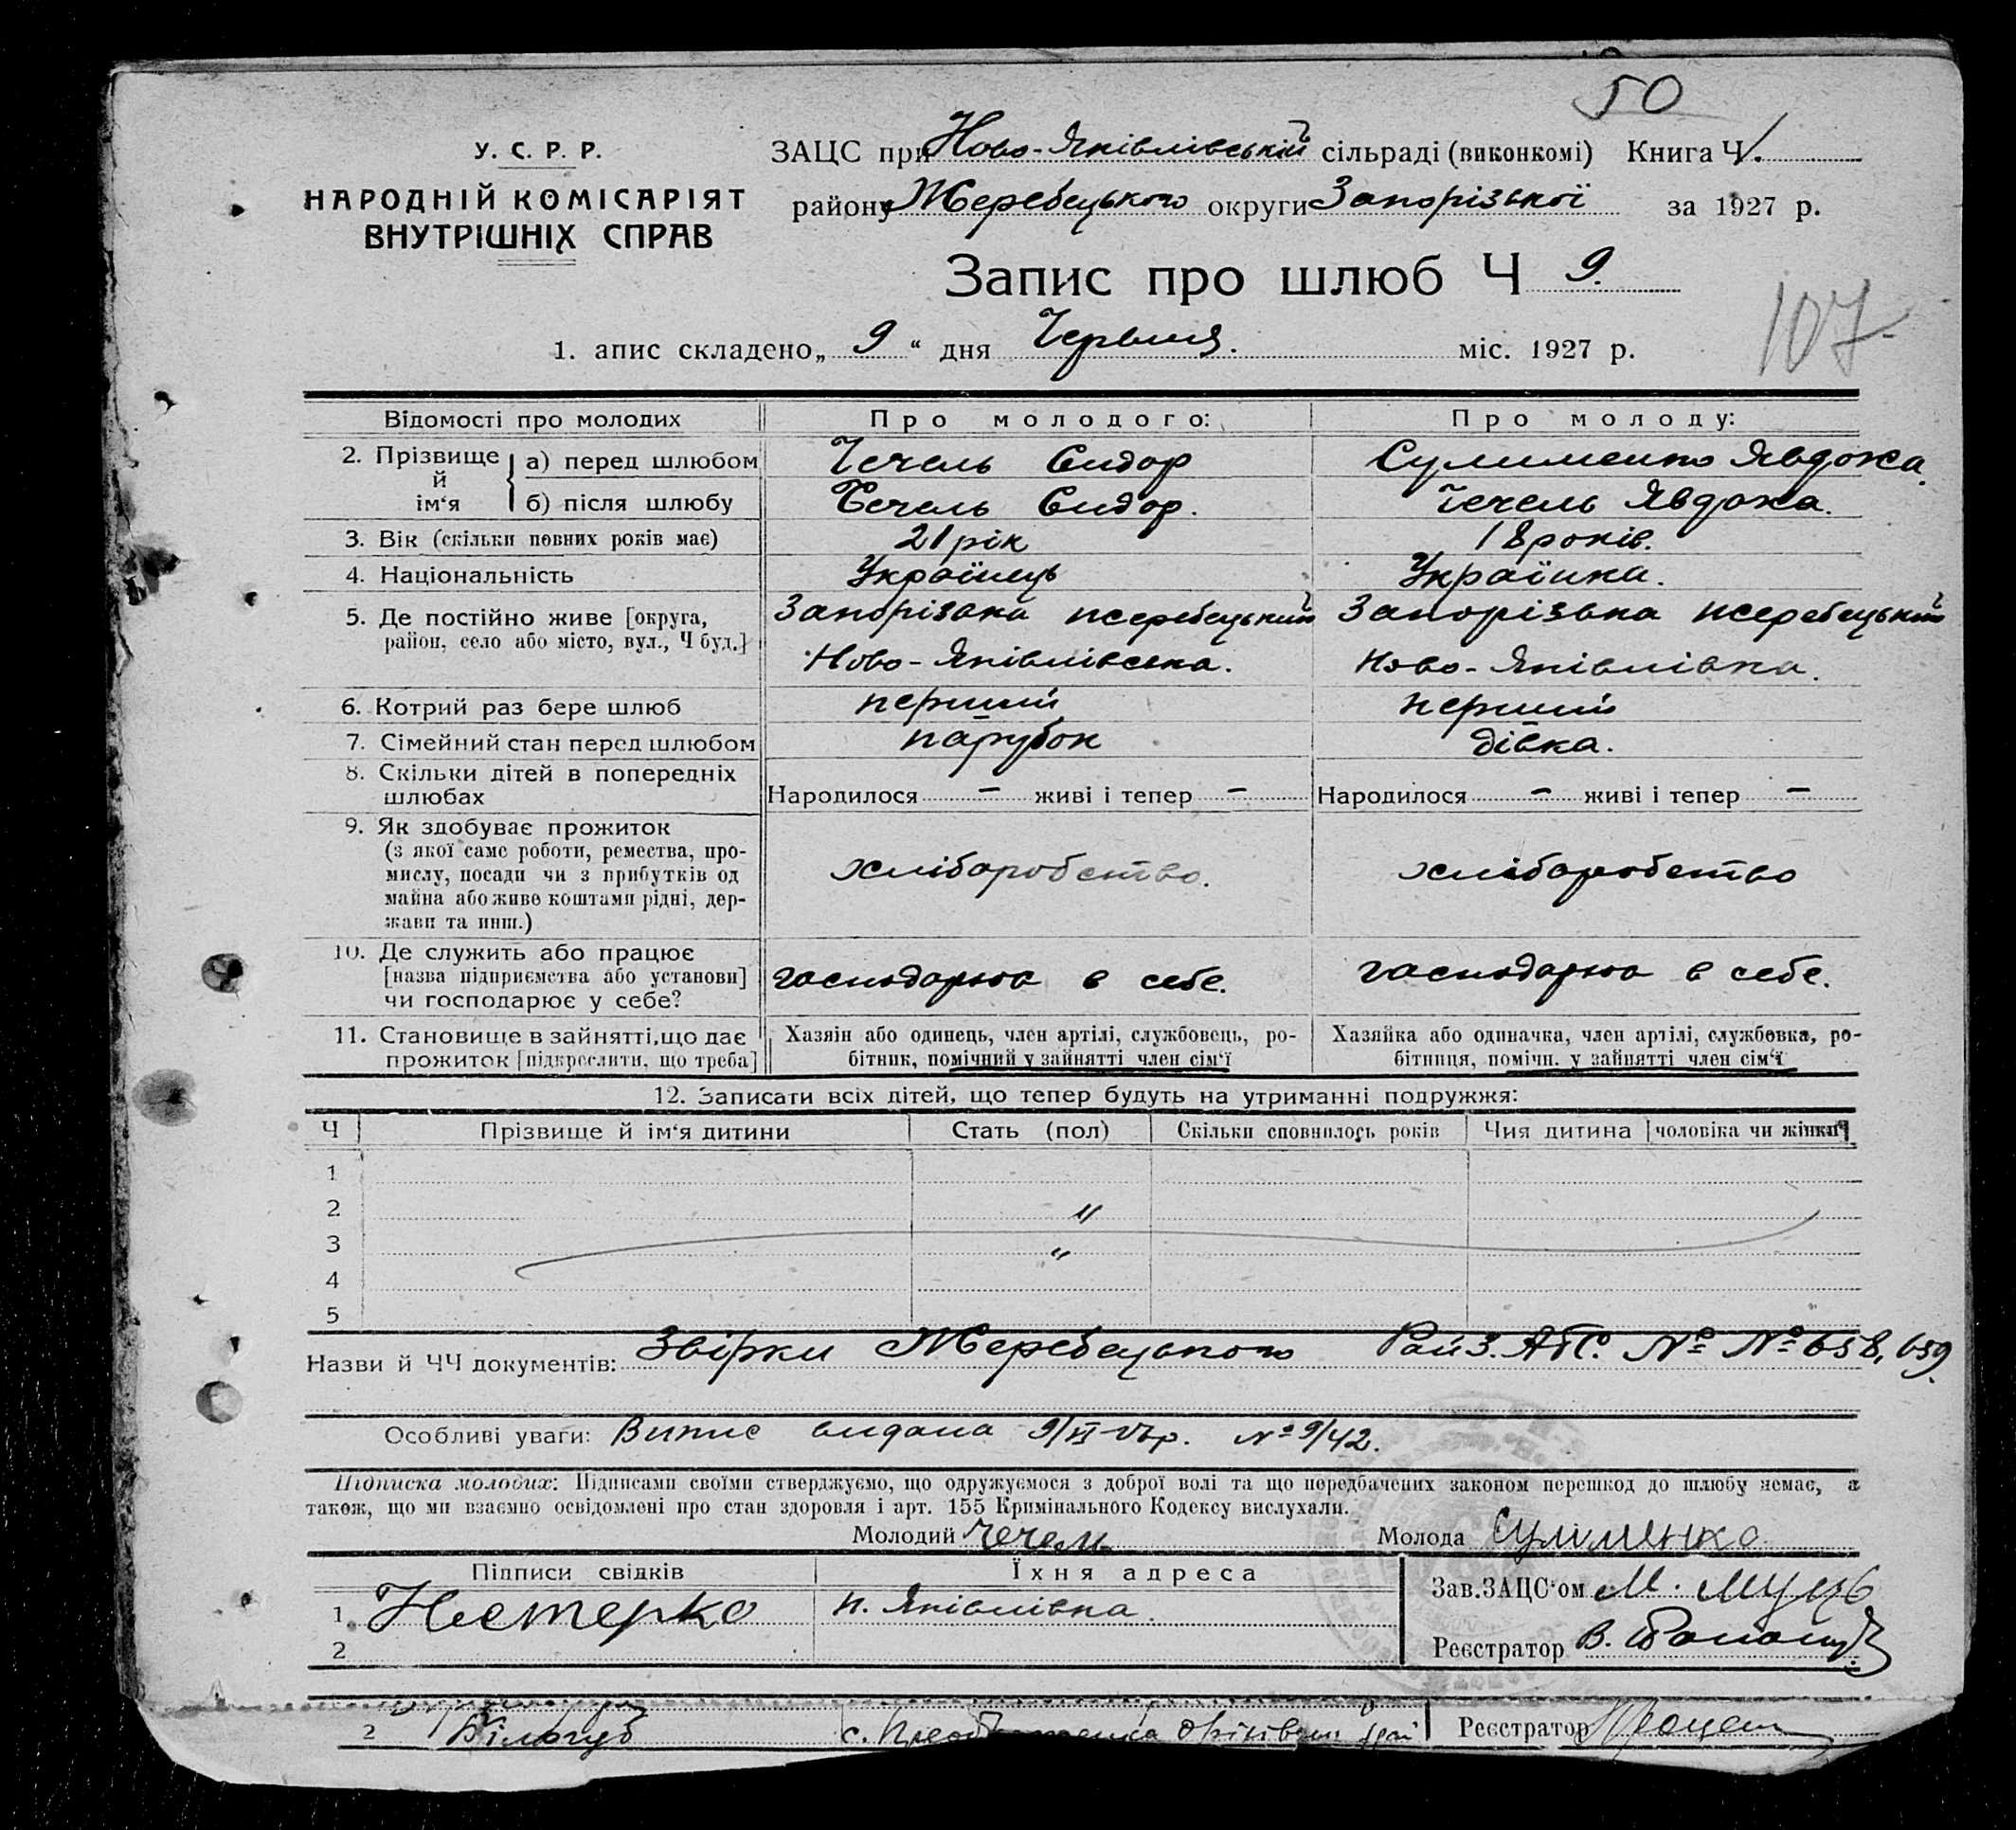 50
У. С. Р. Р.
НАРОДНІЙ КОМІСАРІЯТ
ВНУТРІШНІХ СПРАВ
ЗАЦС при Ново-Яківлівській сільраді (виконкомі) Книга Ч
району Жеребецького округи Запорізької за 1927 р.
Запис про шлюб Ч 9.
107
1. апис складено „ 9 “ дня Червня. міс. 1927 р.
Відомості про молодих Про молодого: Про молоду:
2. Прізвище й ім‘я а) перед шлюбом Чечель Сидор Сулименко Явдоха.
б) після шлюбу Чечель Сидор. Чечель Явдоха.
3. Вік (скільки повних років має) 21 рік 18 років.
4. Національність Українець Українка.
5. Де постійно живе [округа, район, село або місто, вул., Ч буд.] Запорізька жеребецький Запорізька жеребецький
Ново-Яківлівська. Ново-Яківлівка.
6. Котрий раз бере шлюб перший перший
7. Сімейний стан перед шлюбом парубок дівка.
8. Скільки дітей в попередніх шлюбах Народилося – живі і тепер – Народилося – живі і тепер –
9. Як здобуває прожиток
(з якої саме роботи, ремества, про-
мислу, посади чи з прибутків од
майна або живе коштами рідні, дер-
жави та инш.)
хліборобство. хліборобство
10. Де служить або працює
[назва підприємства або установи]
чи господарює у себе?
господарює в себе. господарює в себе.
11. Становище в зайнятті, що дає
прожиток [підкреслити, що треба]
Хазяін або одинець, член артілі, службовець, ро-
бітник, помічний у зайнятті член сім‘ї
Хазяйка або одиначка, член артілі, службовка, ро-
бітниця, помічн. у зайнятті член сім‘ї
12. Записати всіх дітей, що тепер будуть на утриманні подружжя:
Ч Прізвище й ім‘я дитини Стать (пол) Скільки сповнилось років Чия дитина [чоловіка чи жінки]
1
2 "
3 "
4
5
Назви й ЧЧ документів: Звірки Жеребецького Рай З.А.Г.С. № № 658, 659.
Особливі уваги: Випис видана 9/VI-27р. № 9/42.
Підписка молодих: Підписами своїми стверджуємо, що одружуємося з доброї волі та що передбачених законом перешкод до шлюбу немає, а
також, що ми взаємно освідомлені про стан здоровля і арт. 155 Кримінального Кодексу вислухали.
Молодий Чечель Молода Сулименко
Підписи свідків Їхня адреса
Зав. ЗАЦС‘ом М.
1. Нестерко Н. Яківлівка.
2
Реєстратор В.
2 с. Реєстратор